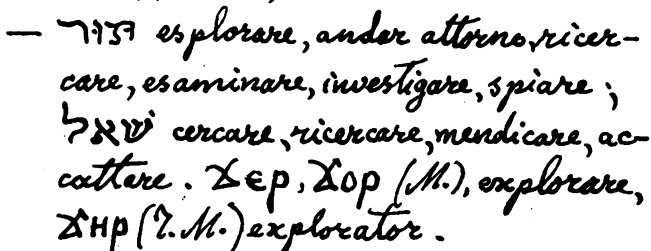 — תור esplorare, andar attorno, ricer-
care, esaminare, investigare, spiare;
שאל cercare, ricercare, mendicare, ac-
cattare. ϫⲉⲣ, ϫⲟⲣ (M.), explorare,
ϫⲏⲣ (T. M.) explorator.